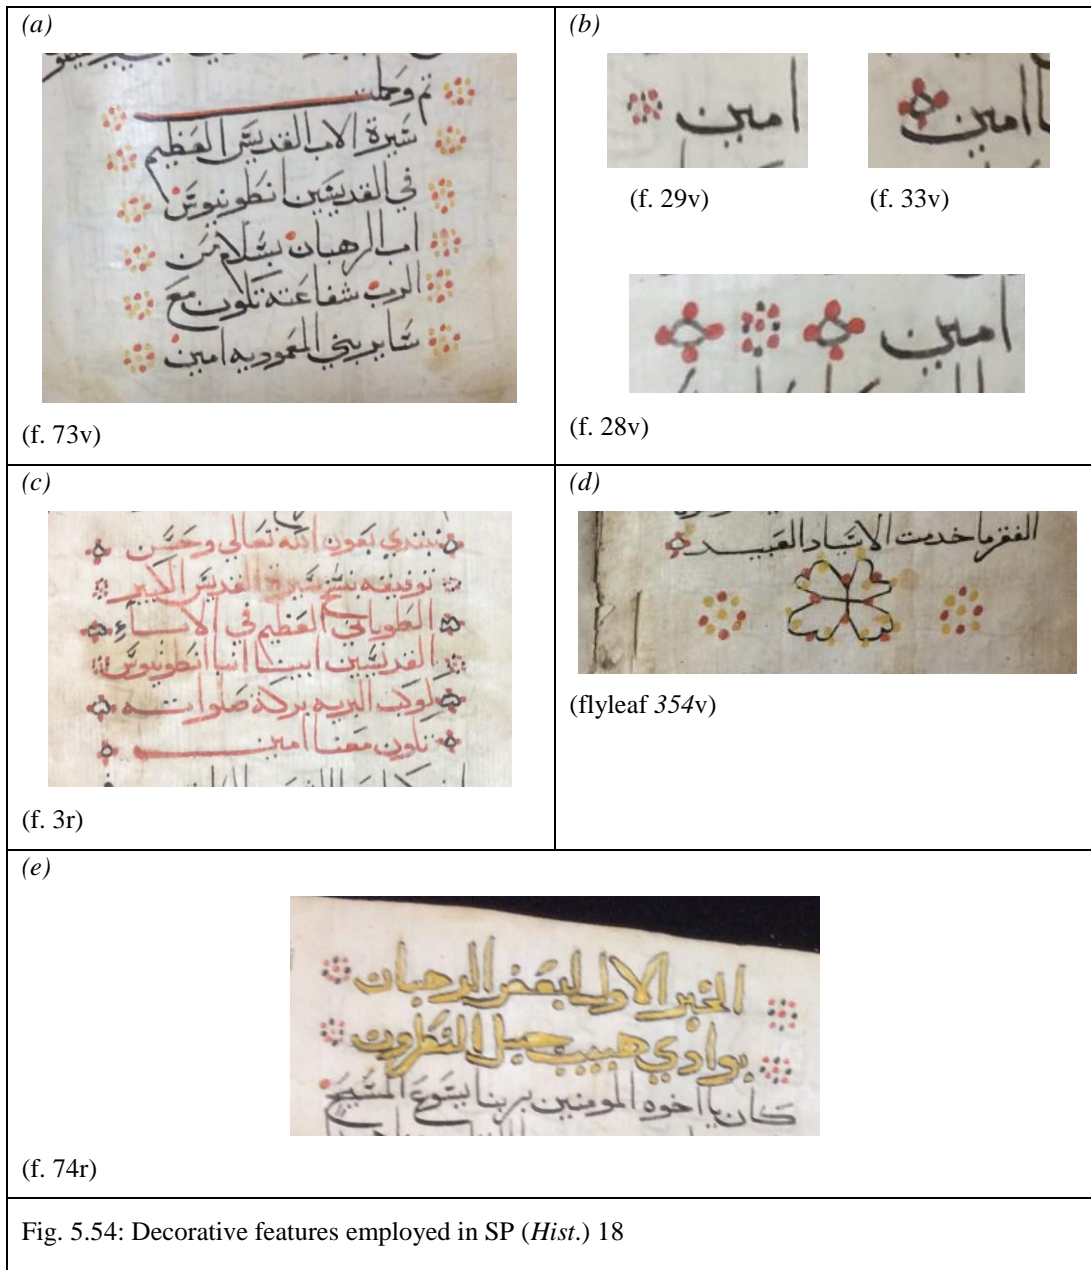 (a)
تم وكملت
سيرة الاب القديس العظيم
في القديسين انطونيوس
اب الرهبان بسلام من
الرب شفاعته تكون مع
ساير بني المعموديه امين
(f. 73v)
(b)
امين
(f. 29v)
امين
(f. 33v)
امين
(f. 28v)
(c)
نبتدي بعون الله تعالي وحسن
توفيقه بنسخ سيرة القديس الكبير
الطوباني العظيم في الاباء
القديسين ابينا انبا انطونيوس
كوكب البريه بركة صلواته
تكون معنا امين
(f. 3r)
(d)
العبيد
(flyleaf 354v)
(e)
الخبر الاول لبعض الرهبان
بوادي هبيب جبل النطرون
كان يا اخوه المومنين بربنا يسوع المسيح
(f. 74r)
Fig. 5.54: Decorative features employed in SP (Hist.) 18